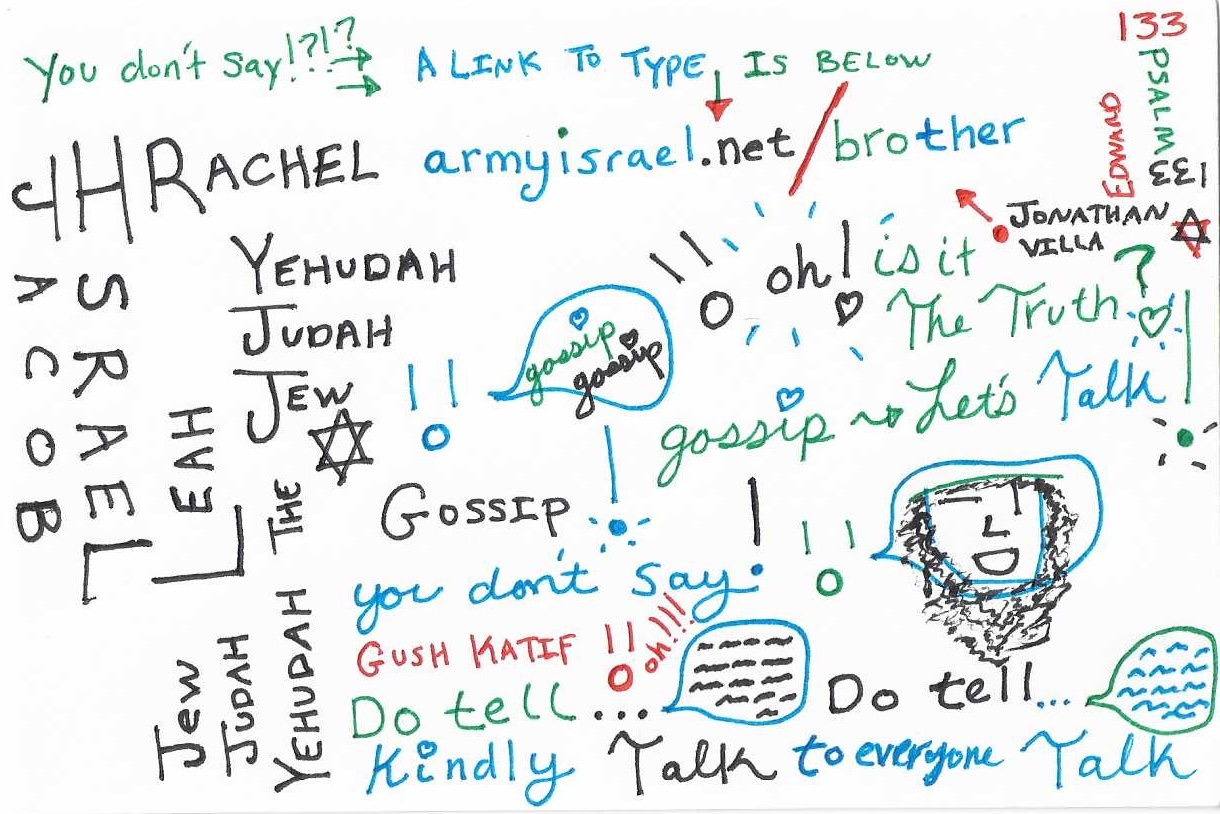 You don't say!?!?
A LINK TO TYPE IS BELOW
armyisrael.net/brother
133
PSALM
133
EDWARD
JONATHAN
VILLA
RACHEL
JACOB
ISRAEL
LEAH
YEHUDAH
JUDAH
JEW
THE
YEHUDAH
JUDAH
Jew
gossip
gossip
oh! is it
The Truth?
gossip Let's Talk
GOSSIP
you don't say!
GUSH KATIF
oh!!!
Do tell...
Do tell...
Kindly Talk to everyone Talk